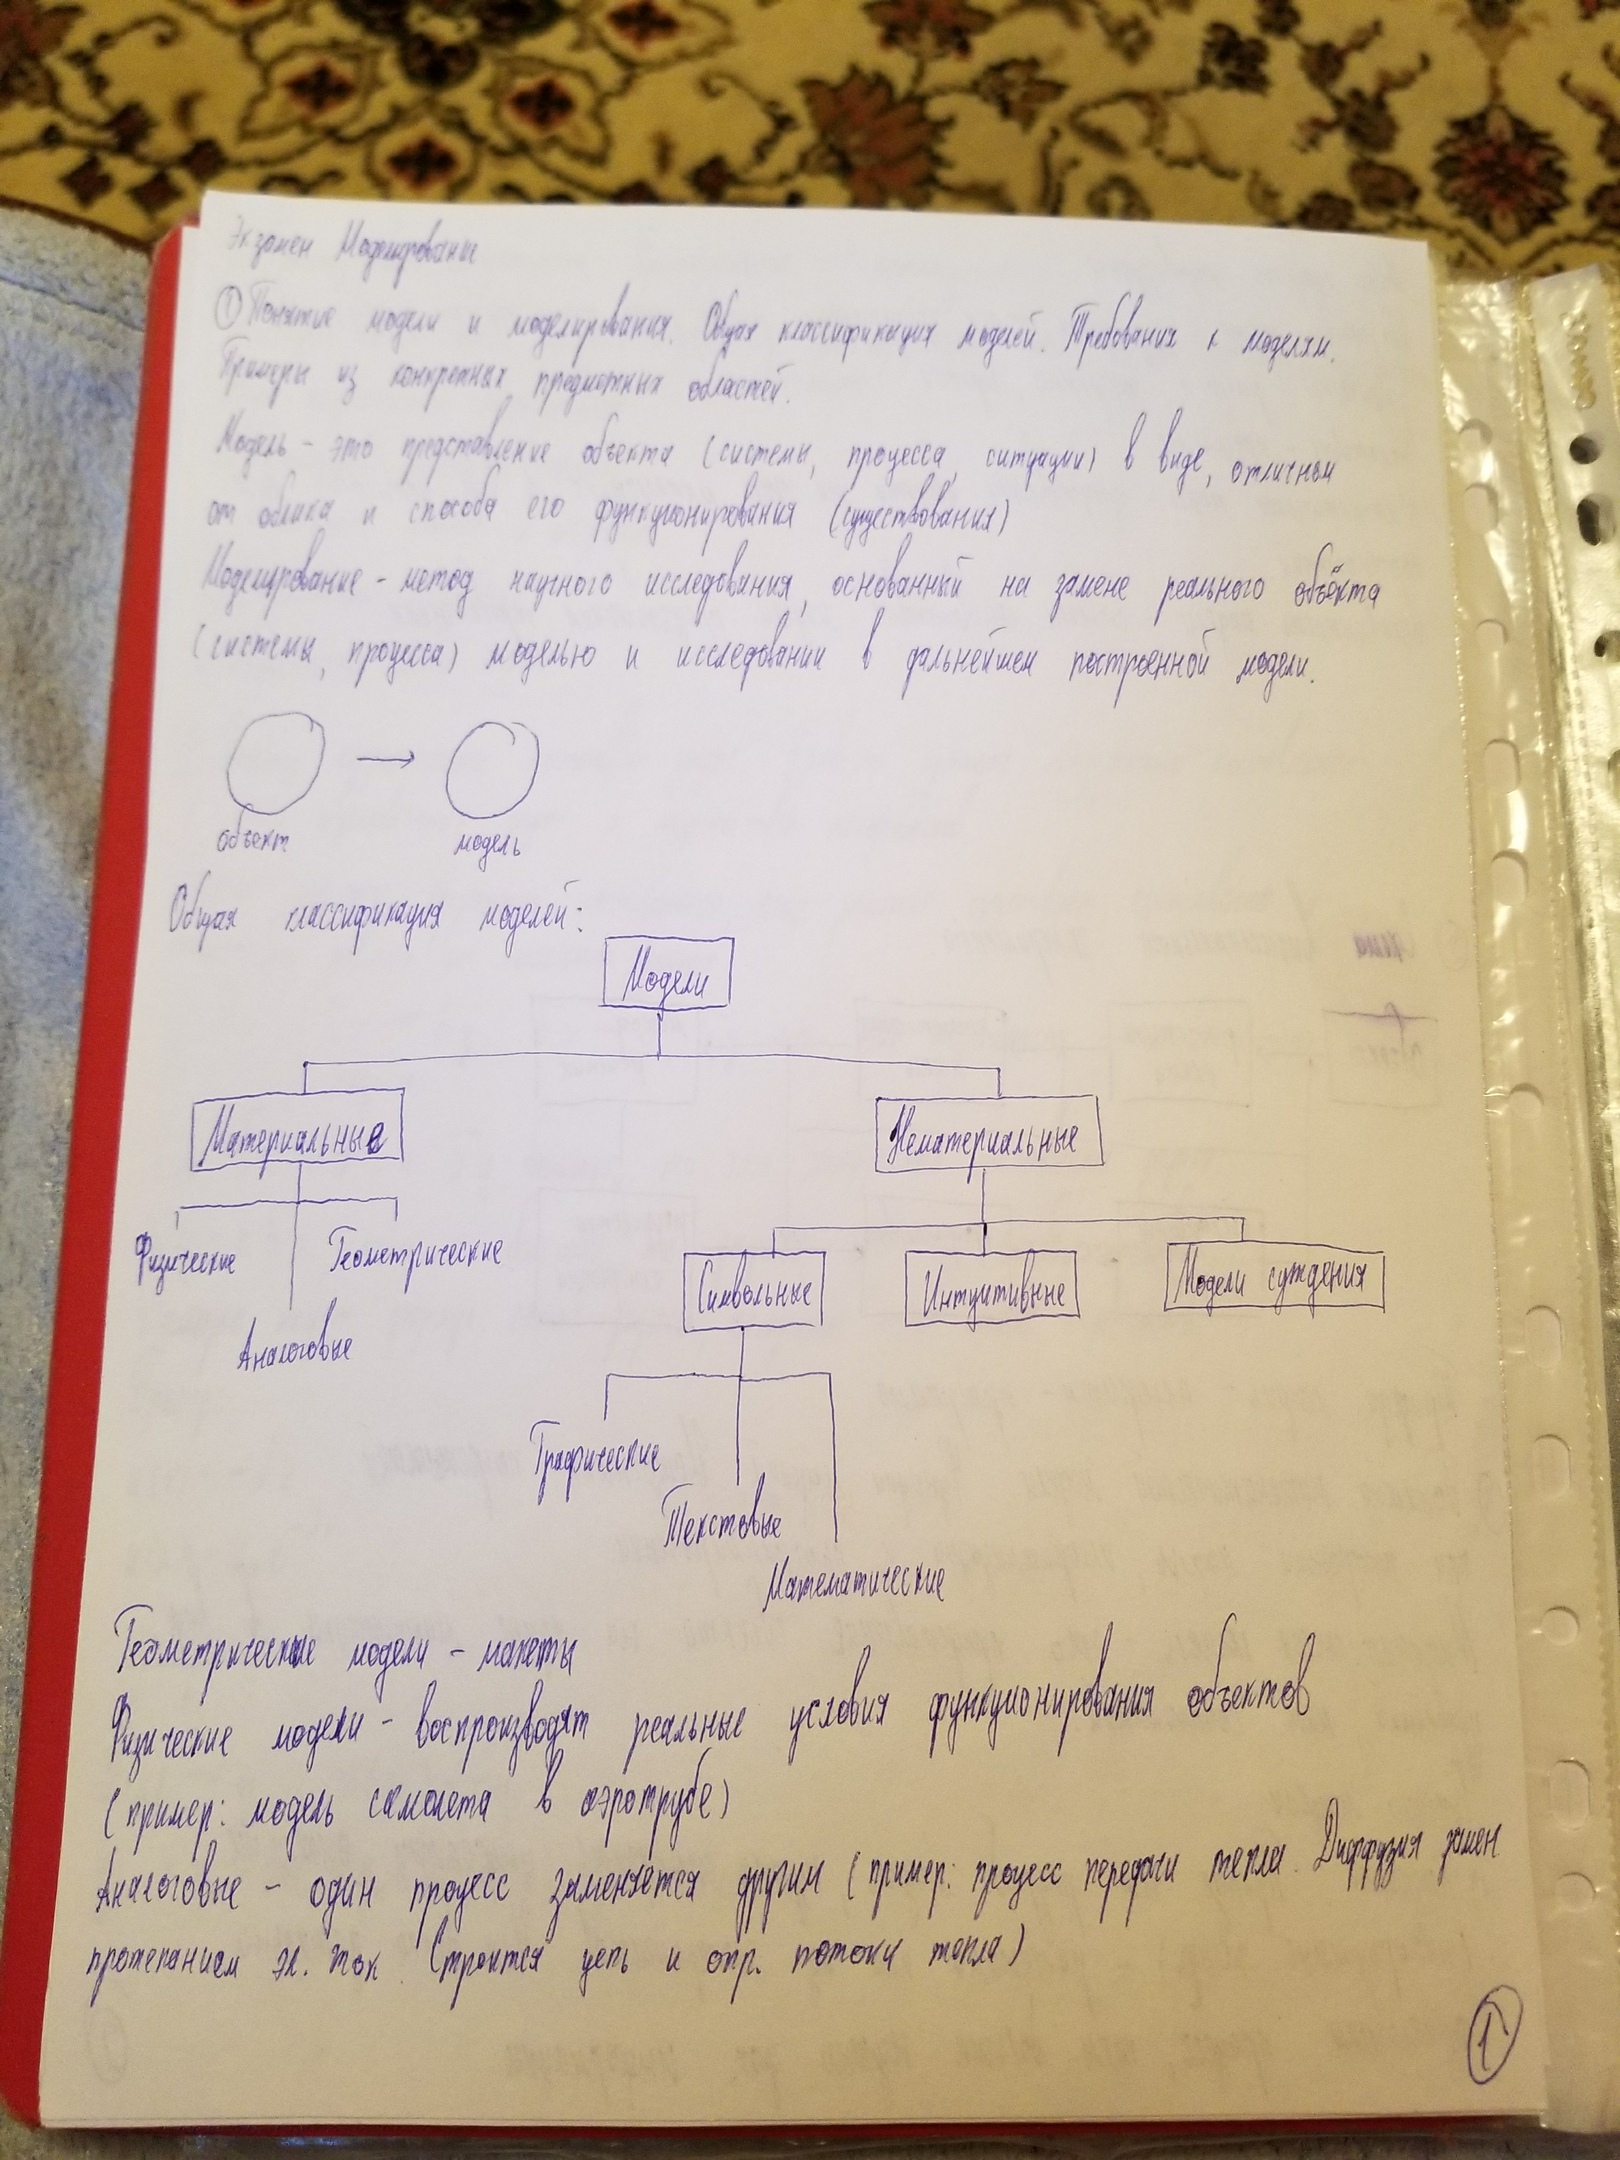 Экзамен Моделирование
① Понятие модели и моделирования. Общая классификация моделей. Требования к моделям.
Примеры из конкретных предметных областей.
Модель - это представление объекта (системы, процесса, ситуации) в виде, отличном
от облика и способа его функционирования (существования)
Моделирование - метод научного исследования, основанный на замене реального объекта
(системы, процесса) моделью и исследовании в дальнейшем построенной модели.
объект → модель
Общая классификация моделей:
Модели
Материальные Нематериальные
Физические Геометрические
Символьные Интуитивные Модели суждения
Аналоговые
Графические
Текстовые
Математические
Геометрические модели - макеты
Физические модели - воспроизводят реальные условия функционирования объектов
(пример: модель самолета в аэротрубе)
Аналоговые - один процесс заменяется другим (пример: процесс передачи тепла. Диффузия замен
протеканием эл. ток. Строится цепь и опр. потоки тепла)
1